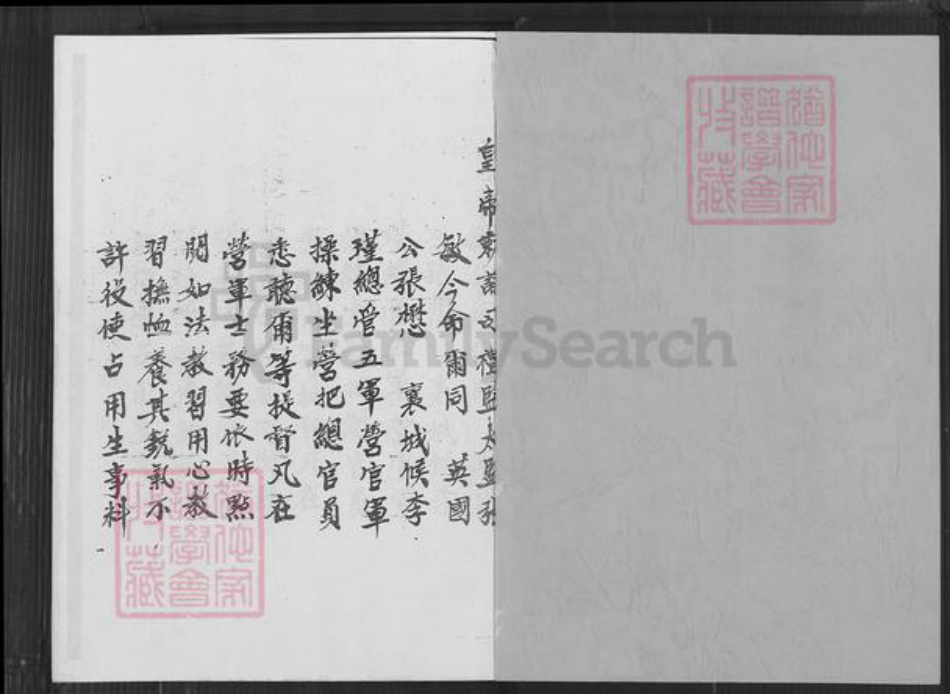 皇帝敕諭司禮監太監張
敏今命爾同 英國
公張懋 襄城候李
瑾總管五軍營官軍
操練坐營把總官員
悉聽爾等提督凡在
營軍士務要依時點
閱如法教習用心教
習撫恤養其銳氣不
許役使占用生事科
譜學會
特藏
FamilySearch
譜學會
特藏